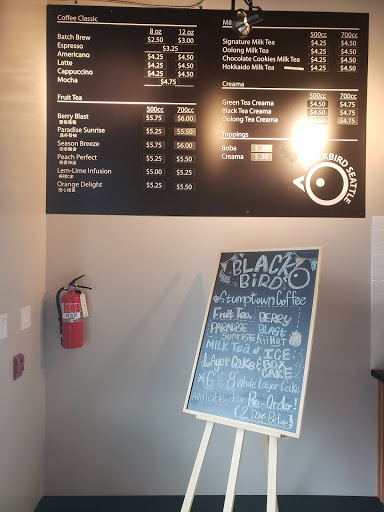 Coffee Classic
8 oz 12 oz
Batch Brew $2.50 $3.00
Espresso $3.25
Americano $4.25 $4.50
Latte $4.25 $4.50
Cappuccino $4.25 $4.50
Mocha $4.75
Fruit Tea 500cc 700cc
Berry Blast $5.75 $6.00
Paradise Sunrise $5.25 $5.50
Season Breeze $5.75 $6.00
Peach Perfect $5.25 $5.50
Lem-Lime Infusion $5.00 $5.25
Orange Delight $5.25 $5.50
500cc 700cc
Signature Milk Tea $4.25 $4.50
Oolong Milk Tea $4.25 $4.50
Chocolate Cookies Milk Tea $4.25 $4.50
Hokkaido Milk Tea $4.25 $4.50
Creama 500cc 700cc
Green Tea Creama $4.50 $4.75
Black Tea Creama $4.50 $4.75
Oolong Tea Creama $4.50 $4.75
Toppings
Boba $ .50
Creama $ .50
BLACKBIRD SEATTLE
BLACK
BIRD
Stumptown Coffee
Fruit Tea BERRY
PARADISE BLAST
SUNRISE
MILK Tea ICE
Layer Cake & BOX
CAKE
*6" & 8" Whole Layer Cake
Available for Pre-Order!
(2 Days Before)